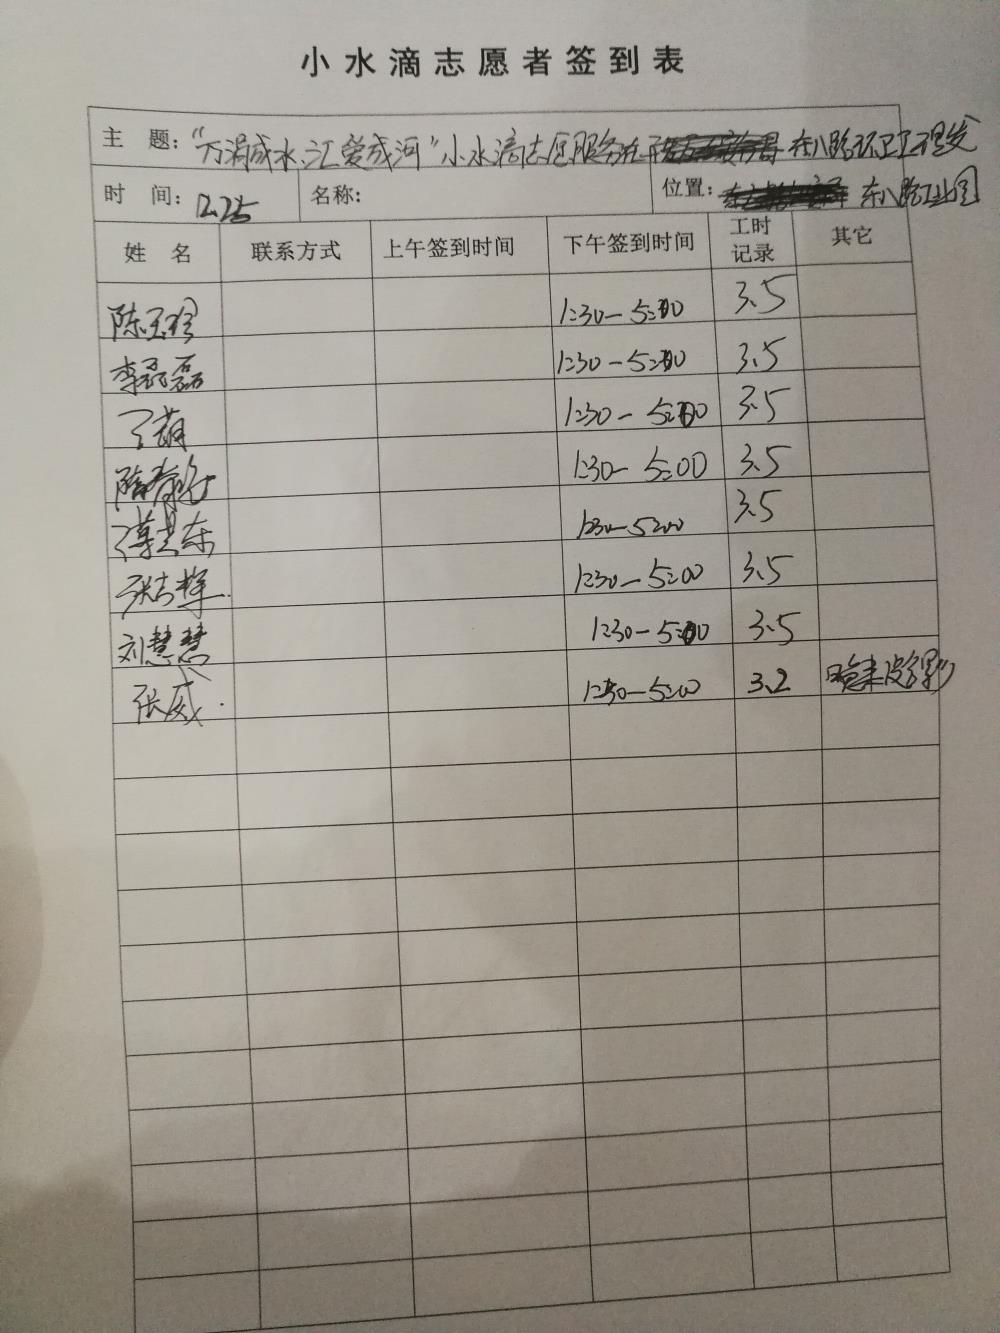 小水滴志愿者签到表
主 题: “万涓成水,汇爱成河”小水滴志愿服务 东八路环卫工理发
时 间: 12.25 名称: 位置: 东八路工业园
姓 名 联系方式 上午签到时间 下午签到时间 工时记录 其它
陈玉珍 1:30—5:00 3.5
李磊磊 1:30—5:00 3.5
丁萌 1:30—5:00 3.5
1:30—5:00 3.5
1:30—5:00 3.5
张志辉 1:30—5:00 3.5
刘慧慧 1:30—5:00 3.5
张威 1:50—5:00 3.2 晚来